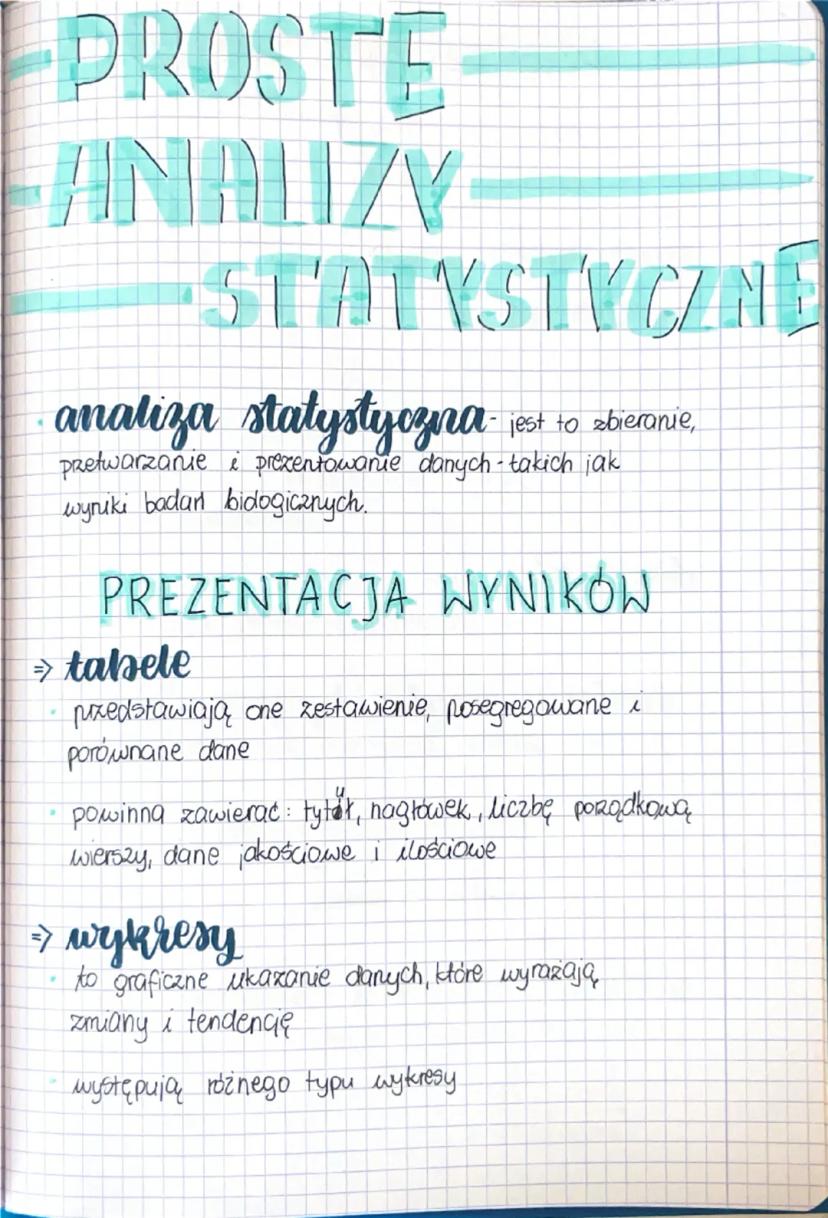 PROSTE
ANALIZY
STATYSTYCZNE
analiza statystyczna - jest to zbieranie,
przetwarzanie i prezentowanie danych - takich jak
wyniki badań biologicznych.
PREZENTACJA WYNIKÓW
⇒ tabele
• przedstawiają one zestawienie, posegregowane i
porównane dane
• powinna zawierać: tytuł, nagłówek, liczbę porządkową
wierszy, dane jakościowe i ilościowe
⇒ wykresy
• to graficzne ukazanie danych, które wyrażają
zmiany i tendencję
• występują różnego typu wykresy